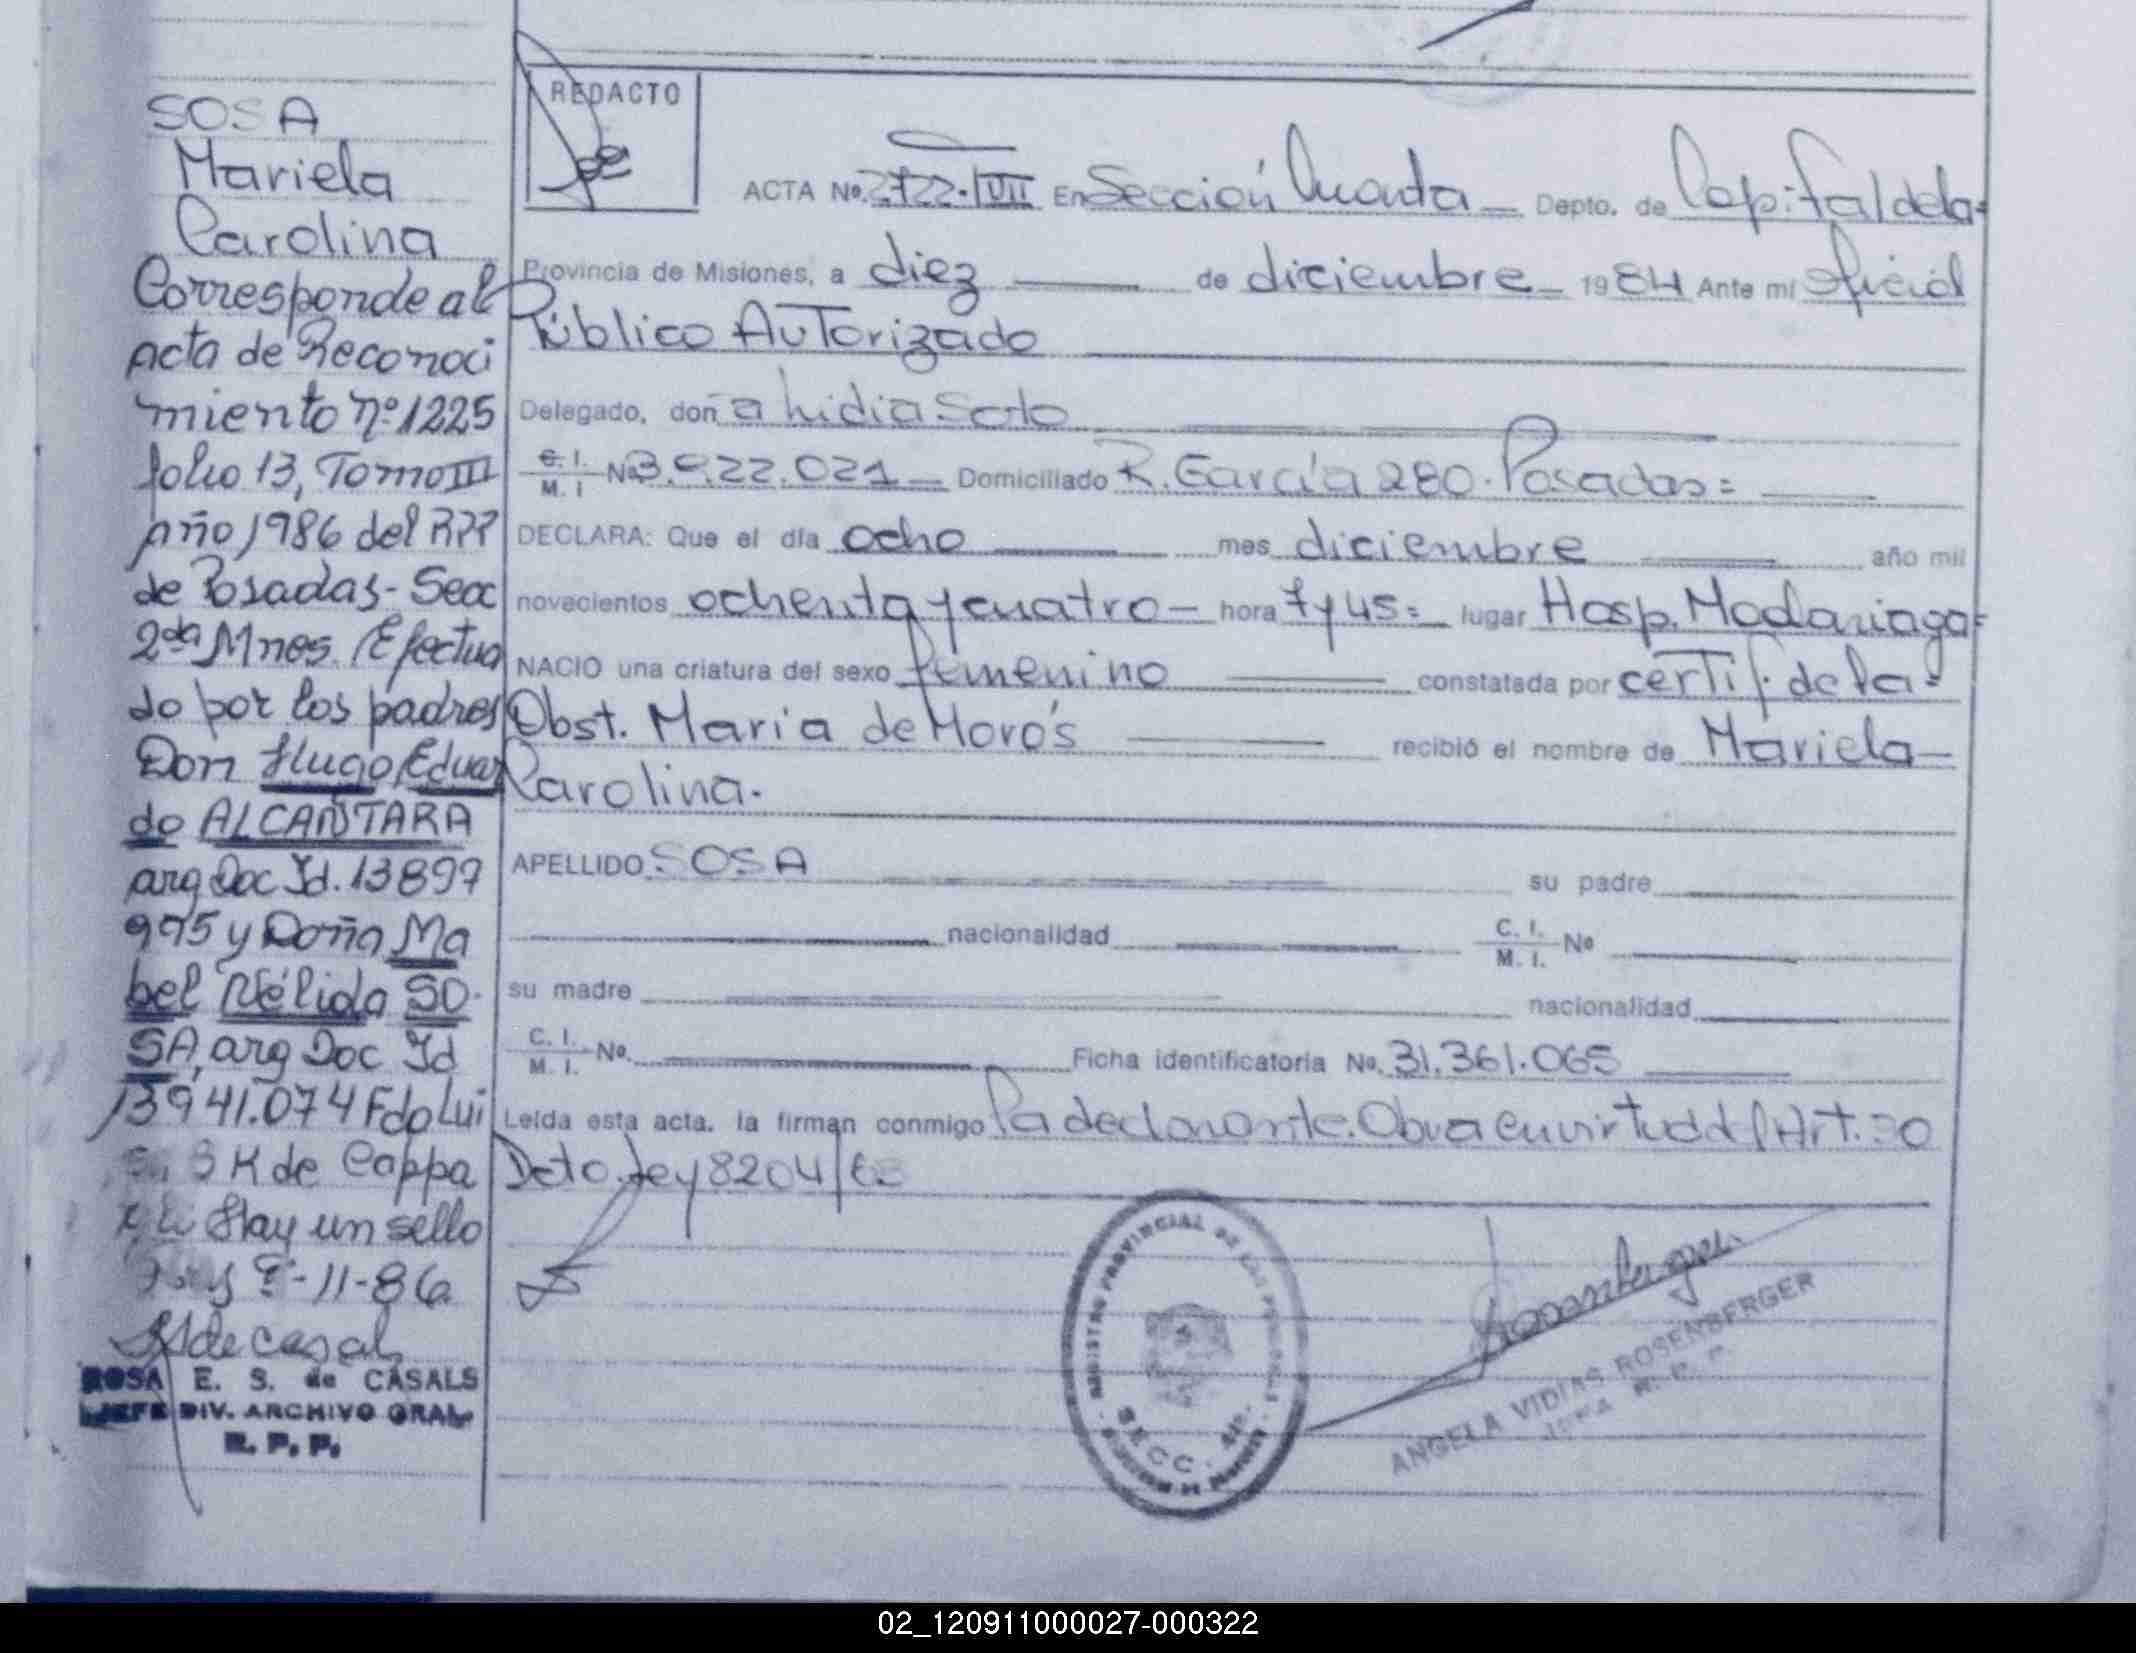 SOSA
Mariela
Carolina
Corresponde al
acta de Reconoci
miento nº 1225
folio 13, Tomo III
año 1986 del RPP
de Posadas - Secc
2da Mnes. Efectua
do por los padres
Don Hugo Eduar
do ALCAÑTARA
arg Doc Id. 13897
995 y Doña Ma
bel Nélida SO
SA, arg Doc Id
13941.074 Fdo Lui
K de Cappa
Hay un sello
-11-86
S de Casals
ROSA E. S. de CASALS
JEFE DIV. ARCHIVO GRAL.
R. P. P.
REDACTO
ACTA Nº 2722-VII En Sección Cuarta Depto. de Capital de la
Provincia de Misiones, a diez de diciembre 1984 Ante mí Oficial
Público Autorizado
Delegado, doña Lidia Soto
C. I. M. I Nº 3.922.021 Domiciliado R. García 280. Posadas=
DECLARA: Que el día ocho mes diciembre año mil
novecientos ochenta y cuatro - hora 7 y 45= lugar Hosp. Madariaga=
NACIO una criatura del sexo femenino constatada por certif. de la=
Obst. Maria de Morós recibió el nombre de Mariela
Carolina.
APELLIDO SOSA su padre
nacionalidad C. I. M. I. Nº
su madre nacionalidad
C. I. M. I. Nº. Ficha identificatoria Nº. 31.361.065
Leída esta acta, la firman conmigo la declarante. Obra en virtud del Art. 30
Dcto. Ley 8204/63
REGISTRO PROVINCIAL DE LAS PERSONAS
SECC. 4ta.
ANGELA VIDIAS ROSENBERGER
JEFA R. P. P.
02_120911000027-000322